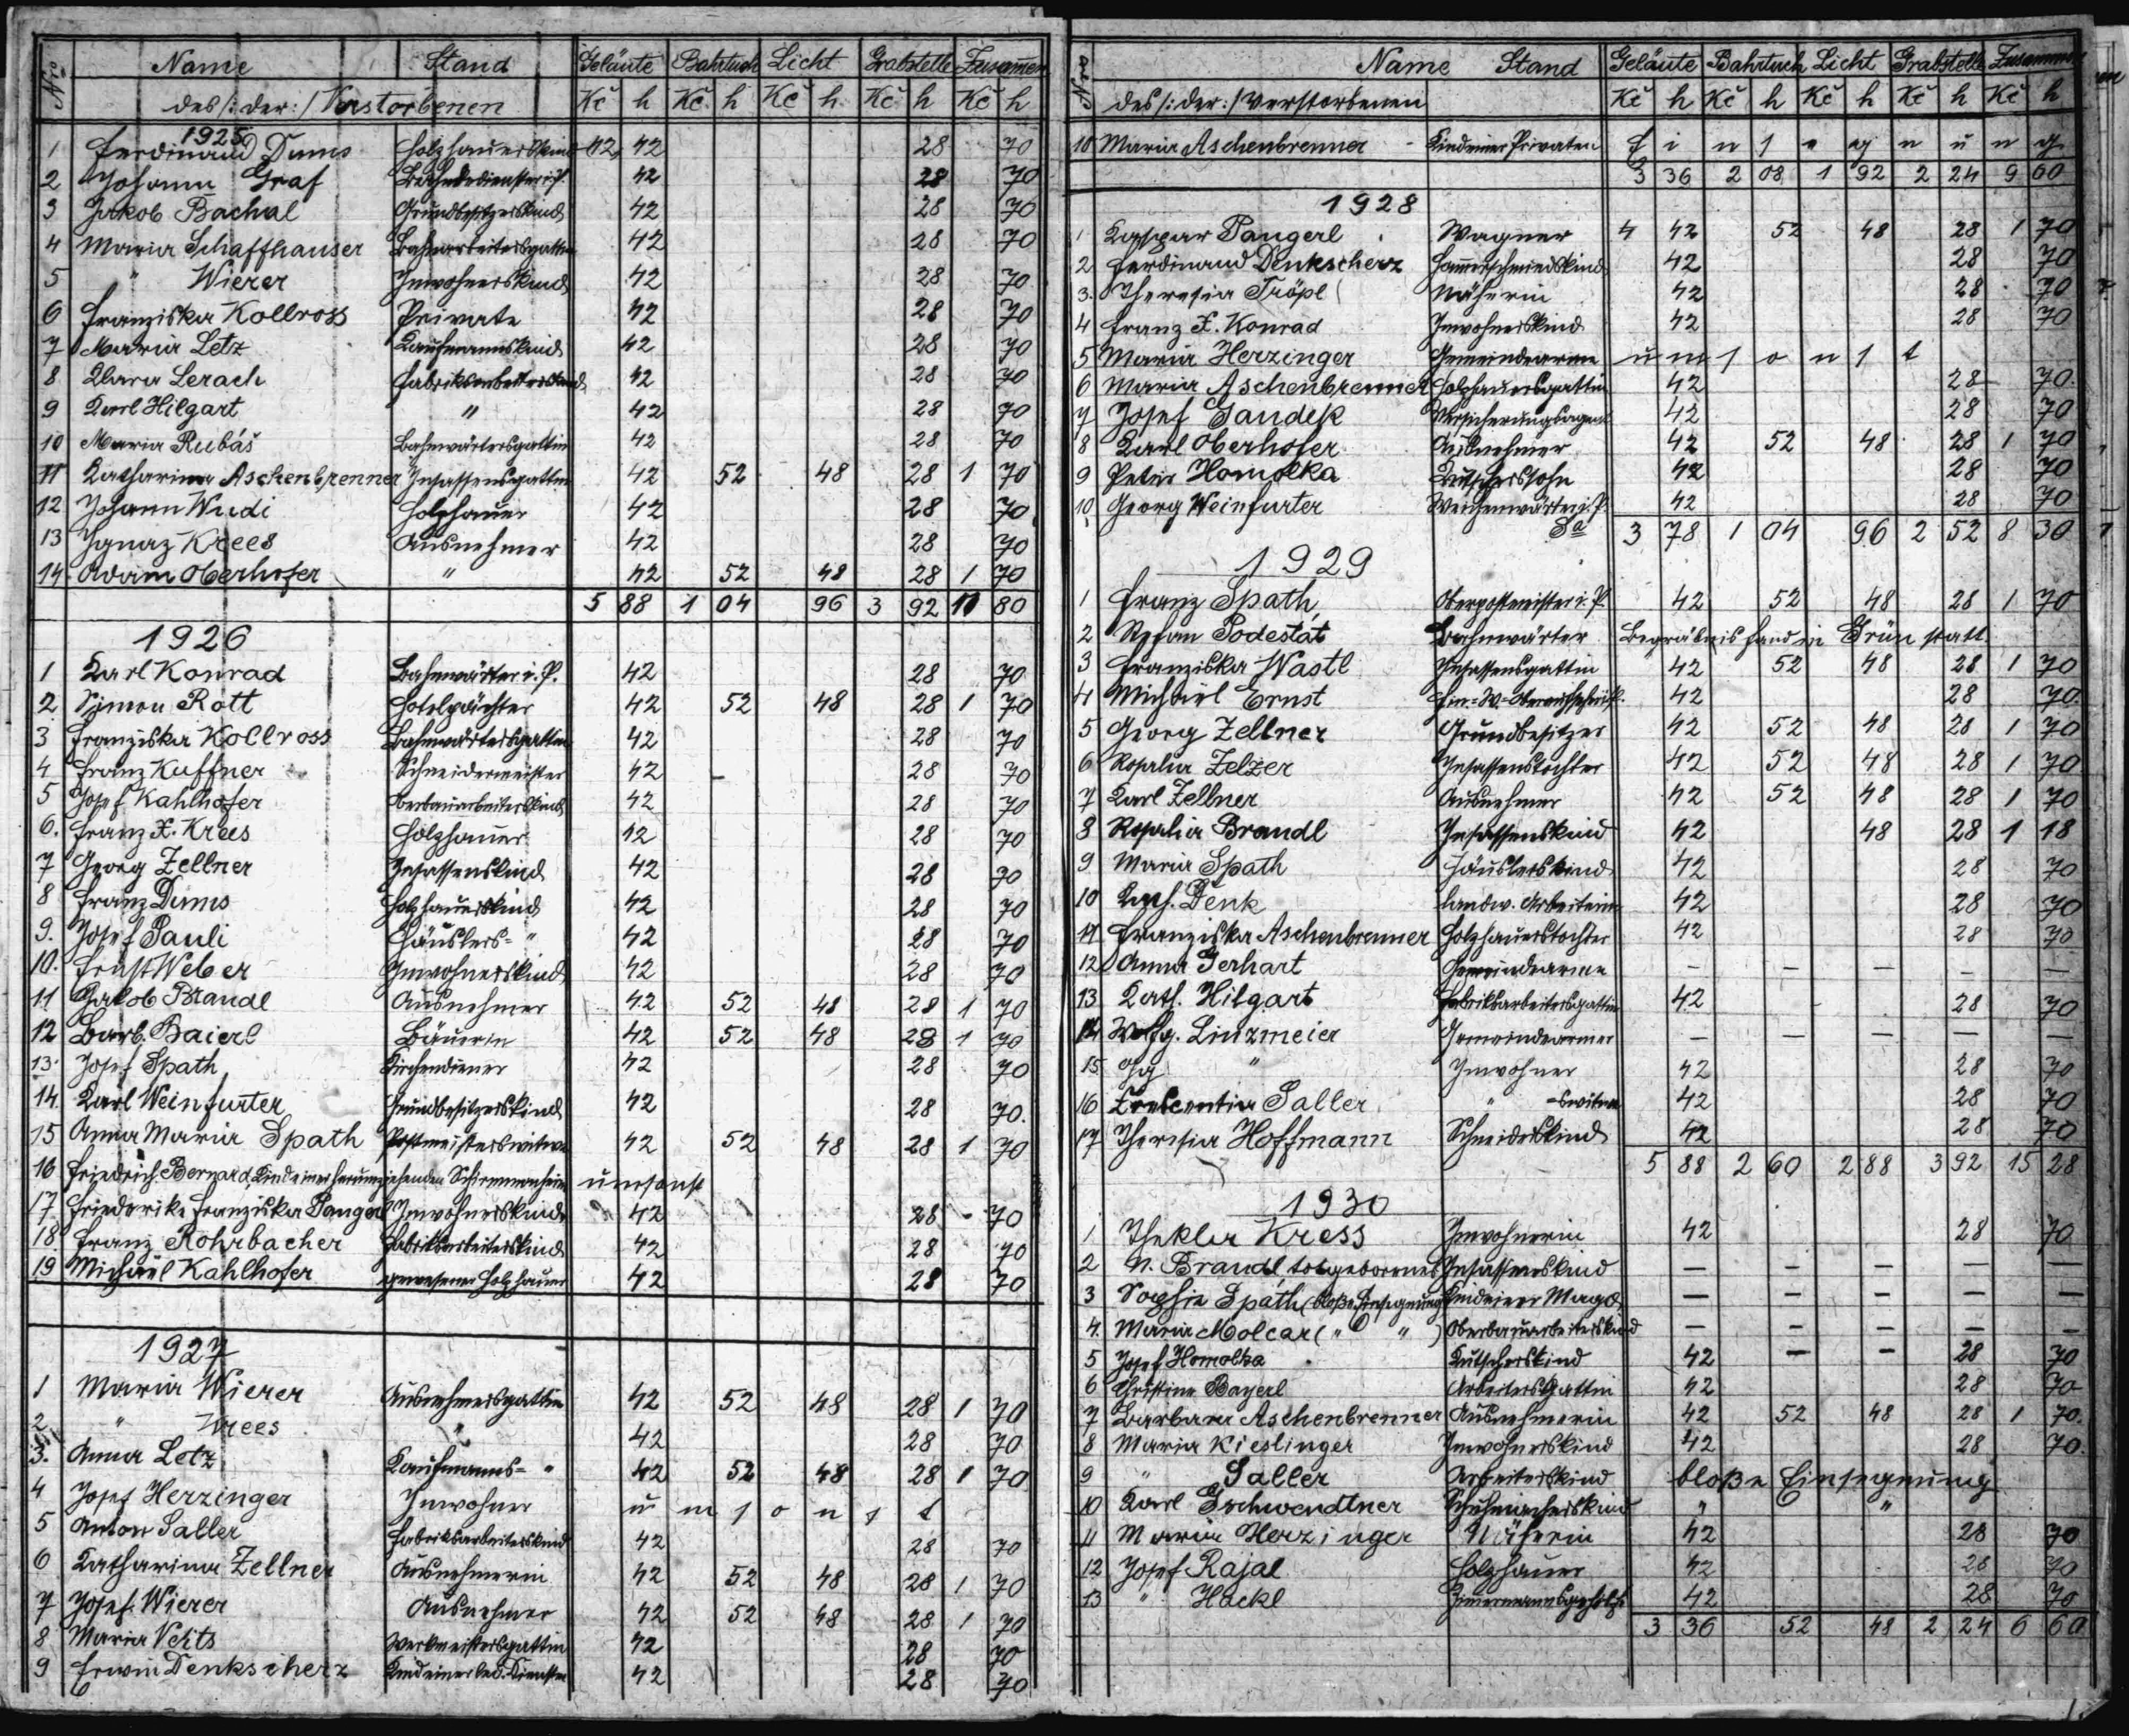 Nro Name Stand Geläute Bahrtuch Licht Grabstelle Zusammen
des/:der:/Verstorbenen Kč h Kč h Kč h Kč h Kč h
1925
1 Ferdinand Dums Holzhauerskind 42 28 70
2 Johann Graf Bahnbediensteter i. P. 42 28 70
3 Jakob Bachal Grundbesitzerskind 42 28 70
4 Maria Schaffhauser Bahnarbeitersgattin 42 28 70
5 " Wierer Inwohnerskind 42 28 70
6 Franziska Kollross Private 42 28 70
7 Maria Letz Kaufmannskind 42 28 70
8 Klara Lerach Fabriksarbeiterskind 42 28 70
9 Karl Hilgart " 42 28 70
10 Maria Rubáš Bahnwärtersgattin 42 28 70
11 Katharina Aschenbrenner Insassensgattin 42 52 48 28 1 70
12 Johann Wudi Holzhauer 42 28 70
13 Ignaz Krees Ausnehmer 42 28 70
14 Adam Oberhofer " 42 52 48 28 1 70
5 88 1 04 96 3 92 11 80
1926
1 Karl Konrad Bahnwärter i. P. 42 28 70
2 Simon Rott Hotelpächter 42 52 48 28 1 70
3 Franziska Kollross Bahnwärtersgattin 42 28 70
4 Franz Kuffner Schneidermeister 42 – 28 70
5 Josef Kahlhofer Oberbauarbeiterskind 42 28 70
6. Franz X. Krees Holzhauer 42 28 70
7 Georg Zellner Insassenskind 42 28 70
8 Franz Dums Holzhauerskind 42 28 70
9. Josef Pauli Häuslers= " 42 28 70
10. Ernst Weber Inwohnerskind 42 28 70
11 Jakob Brandl Ausnehmer 42 52 48 28 1 70
12 Barb. Baierl Bäuerin 42 52 48 28 1 70
13. Josef Spath Kirchendiener 42 28 70
14. Karl Weinfurter Grundbesitzerskind 42 28 70.
15 Anna Maria Spath Postmeisterswitwe 42 52 48 28 1 70
16 Friedrich Bernard, Kind einer herumziehenden umsonst
17 Friederike Franziska Pangerl Inwohnerskind 42 28 - 70
18. Franz Rohrbacher Fabriksarbeiterskind 42 28 70
19 Michael Kahlhofer gewesener Holzhauer 42 28 70
1927
1 Maria Wierer Ausnehmersgattin 42 52 48 28 1 70
2 " Krees " 42 28 70
3. Anna Letz Kaufmanns= " 42 52 48 28 1 70
4 Josef Herzinger Inwohner umsonst
5 Anton Saller Fabriksarbeiterskind 42 28 70
6 Katharina Zellner Ausnehmerin 42 52 48 28 1 70
7 Josef Wierer Ausnehmer 42 52 48 28 1 70
8 Maria Vehts Werkmeistersgattin 42 28 70
9 Erwin Denkscherz Kind einer led. 42 28 70
Nro Name Stand Geläute Bahrtuch Licht Grabstelle Zusammen
des/:der:/Verstorbenen Kč h Kč h Kč h Kč h Kč h
10 Maria Aschenbrenner - Kind einer Privaten Einsegnung
3 36 2 08 1 92 2 24 9 60
1928
1 Kaspar Pangerl Wagner 4 42 52 48 28 1 70
2 Ferdinand Denkscherz Hammerschmiedskind 42 28 70
3. Theresia Tröpl Näherin 42 28 70
4 Franz X. Konrad Inwohnerskind 42 28 70
5 Maria Herzinger Gemeindearme umsonst
6 Maria Aschenbrenner Holzhauersgattin 42 28 70.
7 Josef Jandek Versicherungsagent 42 28 70
8 Karl Oberhofer Ausnehmer 42 52 48 28 1 70
9 Peter Homolka Kutscherssohn 42 28 70
10 Georg Weinfurter Weichenwärter i. P. 42 28 70
Sa 3 78 1 04 96 2 52 8 30
1929
1 Franz Spath Oberpostmeister i. P. 42 52 48 28 1 70
2 Stefan Podestát Bahnwärter Begräbnis fand in Grün statt
3 Franziska Wastl Insassensgattin 42 52 48 28 1 70
4 Michael Ernst 42 28 70.
5 Georg Zellner Grundbesitzer 42 52 48 28 1 70
6 Rosalia Zelzer Insassenstochter 42 52 48 28 1 70
7 Karl Zellner Ausnehmer 42 52 48 28 1 70
8 Rosalia Brandl Insassenskind 42 48 28 1 18
9 Maria Spath Häuslerskind 42 28 70
10 Kath. Denk landw. Arbeiterin 42 28 70
11 Franziska Aschenbrenner Holzhauerstochter 42 28 70
12 Anna Gerhart Gemeindearme – – – – –
13 Kath. Hilgart Fabriksarbeitersgattin 42 28 70
14 Wolfg. Linzmeier Gemeindearmer – – – – –
15 Gg " Inwohner 42 28 70
16 Krescentia Saller " -switwe 42 28 70
17 Theresia Hoffmann Schneiderskind 42 28 70
5 88 2 60 2 88 3 92 15 28
1930
1 Thekla Kress Inwohnerin 42 28 70
2 N. Brandl totgeborenes Insassenskind – – – – –
3 Sophie Späth (bloße Einsegnung) Kind einer Magd – – – – –
4. Maria Molcar ( " " ) Oberbauarbeiterskind – – – – –
5 Josef Homolka Kutscherskind 42 – – 28 70
6 Christine Bayerl Arbeitersgattin 42 28 70
7 Barbara Aschenbrenner Ausnehmerin 42 52 48 28 1 70.
8 Maria Kieslinger Inwohnerskind 42 28 70.
9 " Saller Arbeiterskind bloße Einsegnung
10 Karl Gschwendtner Schuhmacherskind " "
11 Maria Herzinger Näherin 42 28 70
12 Josef Rajal Holzhauer 42 28 70
13 " Hackl Zimmermannsgehilfe 42 28 70
3 36 52 48 2 24 6 60